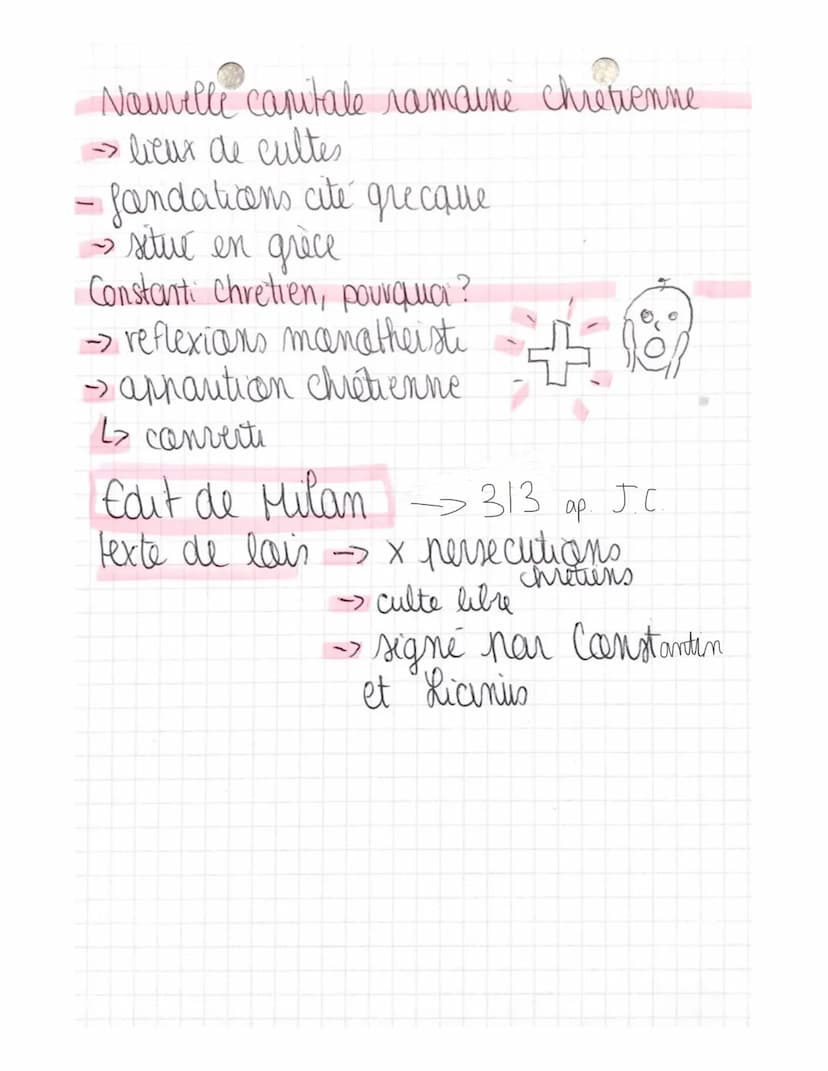 Nouvelle capitale romaine chrétienne
-> lieux de cultes
- fondations cité grecque
-> situé en grèce
Constanti chretien, pourquoi?
-> reflexions monotheiste
-> apparution chrétienne
↳ converti
Edit de Milan -> 313 ap. J.C.
texte de lois -> x persecutions
chrétiens
-> culte libre
-> signé par Constantin
et Licinius